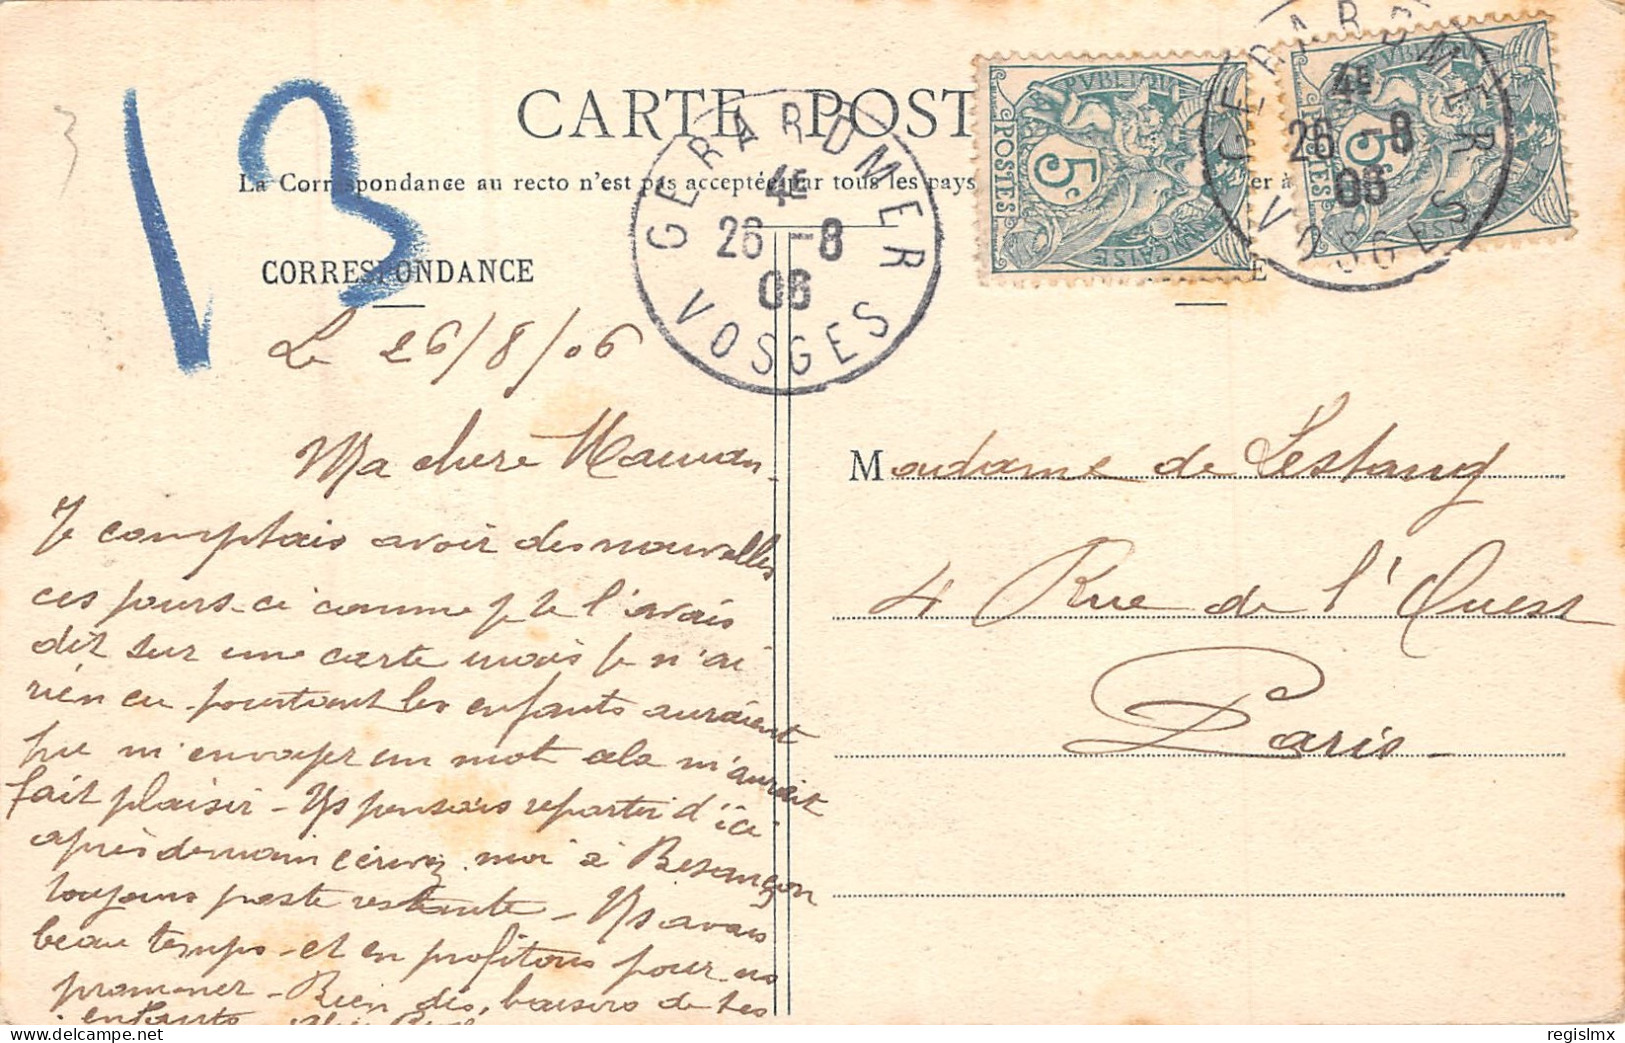 13
3
CARTE POST
La Correspondance au recto n'est pas acceptée par tous les pays
er à
CORRESPONDANCE
E
GERARDMER
4E
26 -8
06
VOSGES
RÉPUBLIQUE
FRANÇAISE
POSTES
5c
GERARDMER
4E
26 -8
06
VOSGES
POSTES
5c
Le 26/8/06
Ma chère Maman
Je comptais avoir des nouvelles
ces jours-ci comme je te l'avais
dit sur une carte mais je n'ai
rien eu pourtant les enfants auraient
pu m'envoyer un mot cela m'aurait
fait plaisir - Ns pensons repartir d'ici
après demain écrivez moi à Besançon
toujours poste restante - Ns avons
beau temps - et en profitons pour ns
promener - Bien des baisers de tes
enfants
Madame de Lestang
4 Rue de l'Ouest
Paris -
regislmx